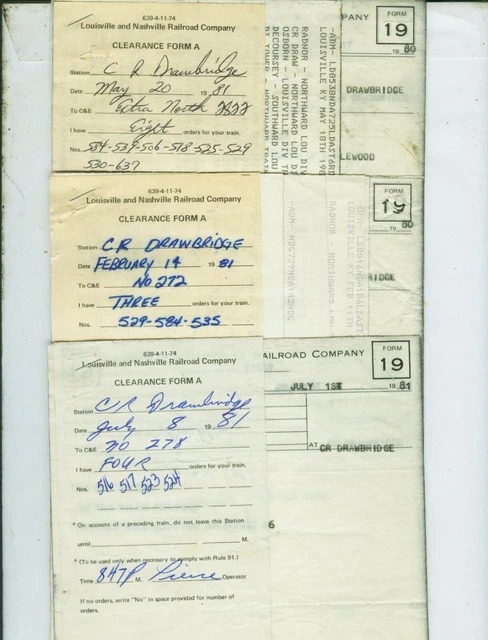 639-4-11-74
Louisville and Nashville Railroad Company
CLEARANCE FORM A
Station C R Drawbridge
Date May 20 19 81
To C&E Extra North
I have Eight orders for your train.
Nos. 584-539-506-518-525-529
530-637
PANY
FORM
19
19 80
DRAWBRIDGE
LEWOOD
LOUISVILLE KY MAY 18TH 198
RADNOR - NORTHWARD LOU DIV
CR DRAW - NORTHWARD LOU DI
OSBORN - LOUISVILLE DIV TR
DECOURSEY - SOUTHWARD LOU
639-4-11-74
Louisville and Nashville Railroad Company
CLEARANCE FORM A
Station CR DRAWBRIDGE
Date FEBRUARY 14 19 81
To C&E NO 272
I have THREE orders for your train.
Nos. 529-584-535
FORM
19
19 80
RIDGE
LOUISVILLE KY FEB 11TH
RADNOR - NORTHWARD
639-4-11-74
Louisville and Nashville Railroad Company
CLEARANCE FORM A
Station CR Drawbridge
Date July 8 19 81
To C&E no 278
I have FOUR orders for your train.
Nos. 516 517 523 524
* On account of a preceding train, do not leave this Station
until M.
* (To be used only when necessary to comply with Rule 91.)
Time 847P M. Pierce Operator
If no orders, write "No" in space provided for number of
orders.
AILROAD COMPANY
FORM
19
JULY 1ST 19 81
AT CR DRAWBRIDGE
6